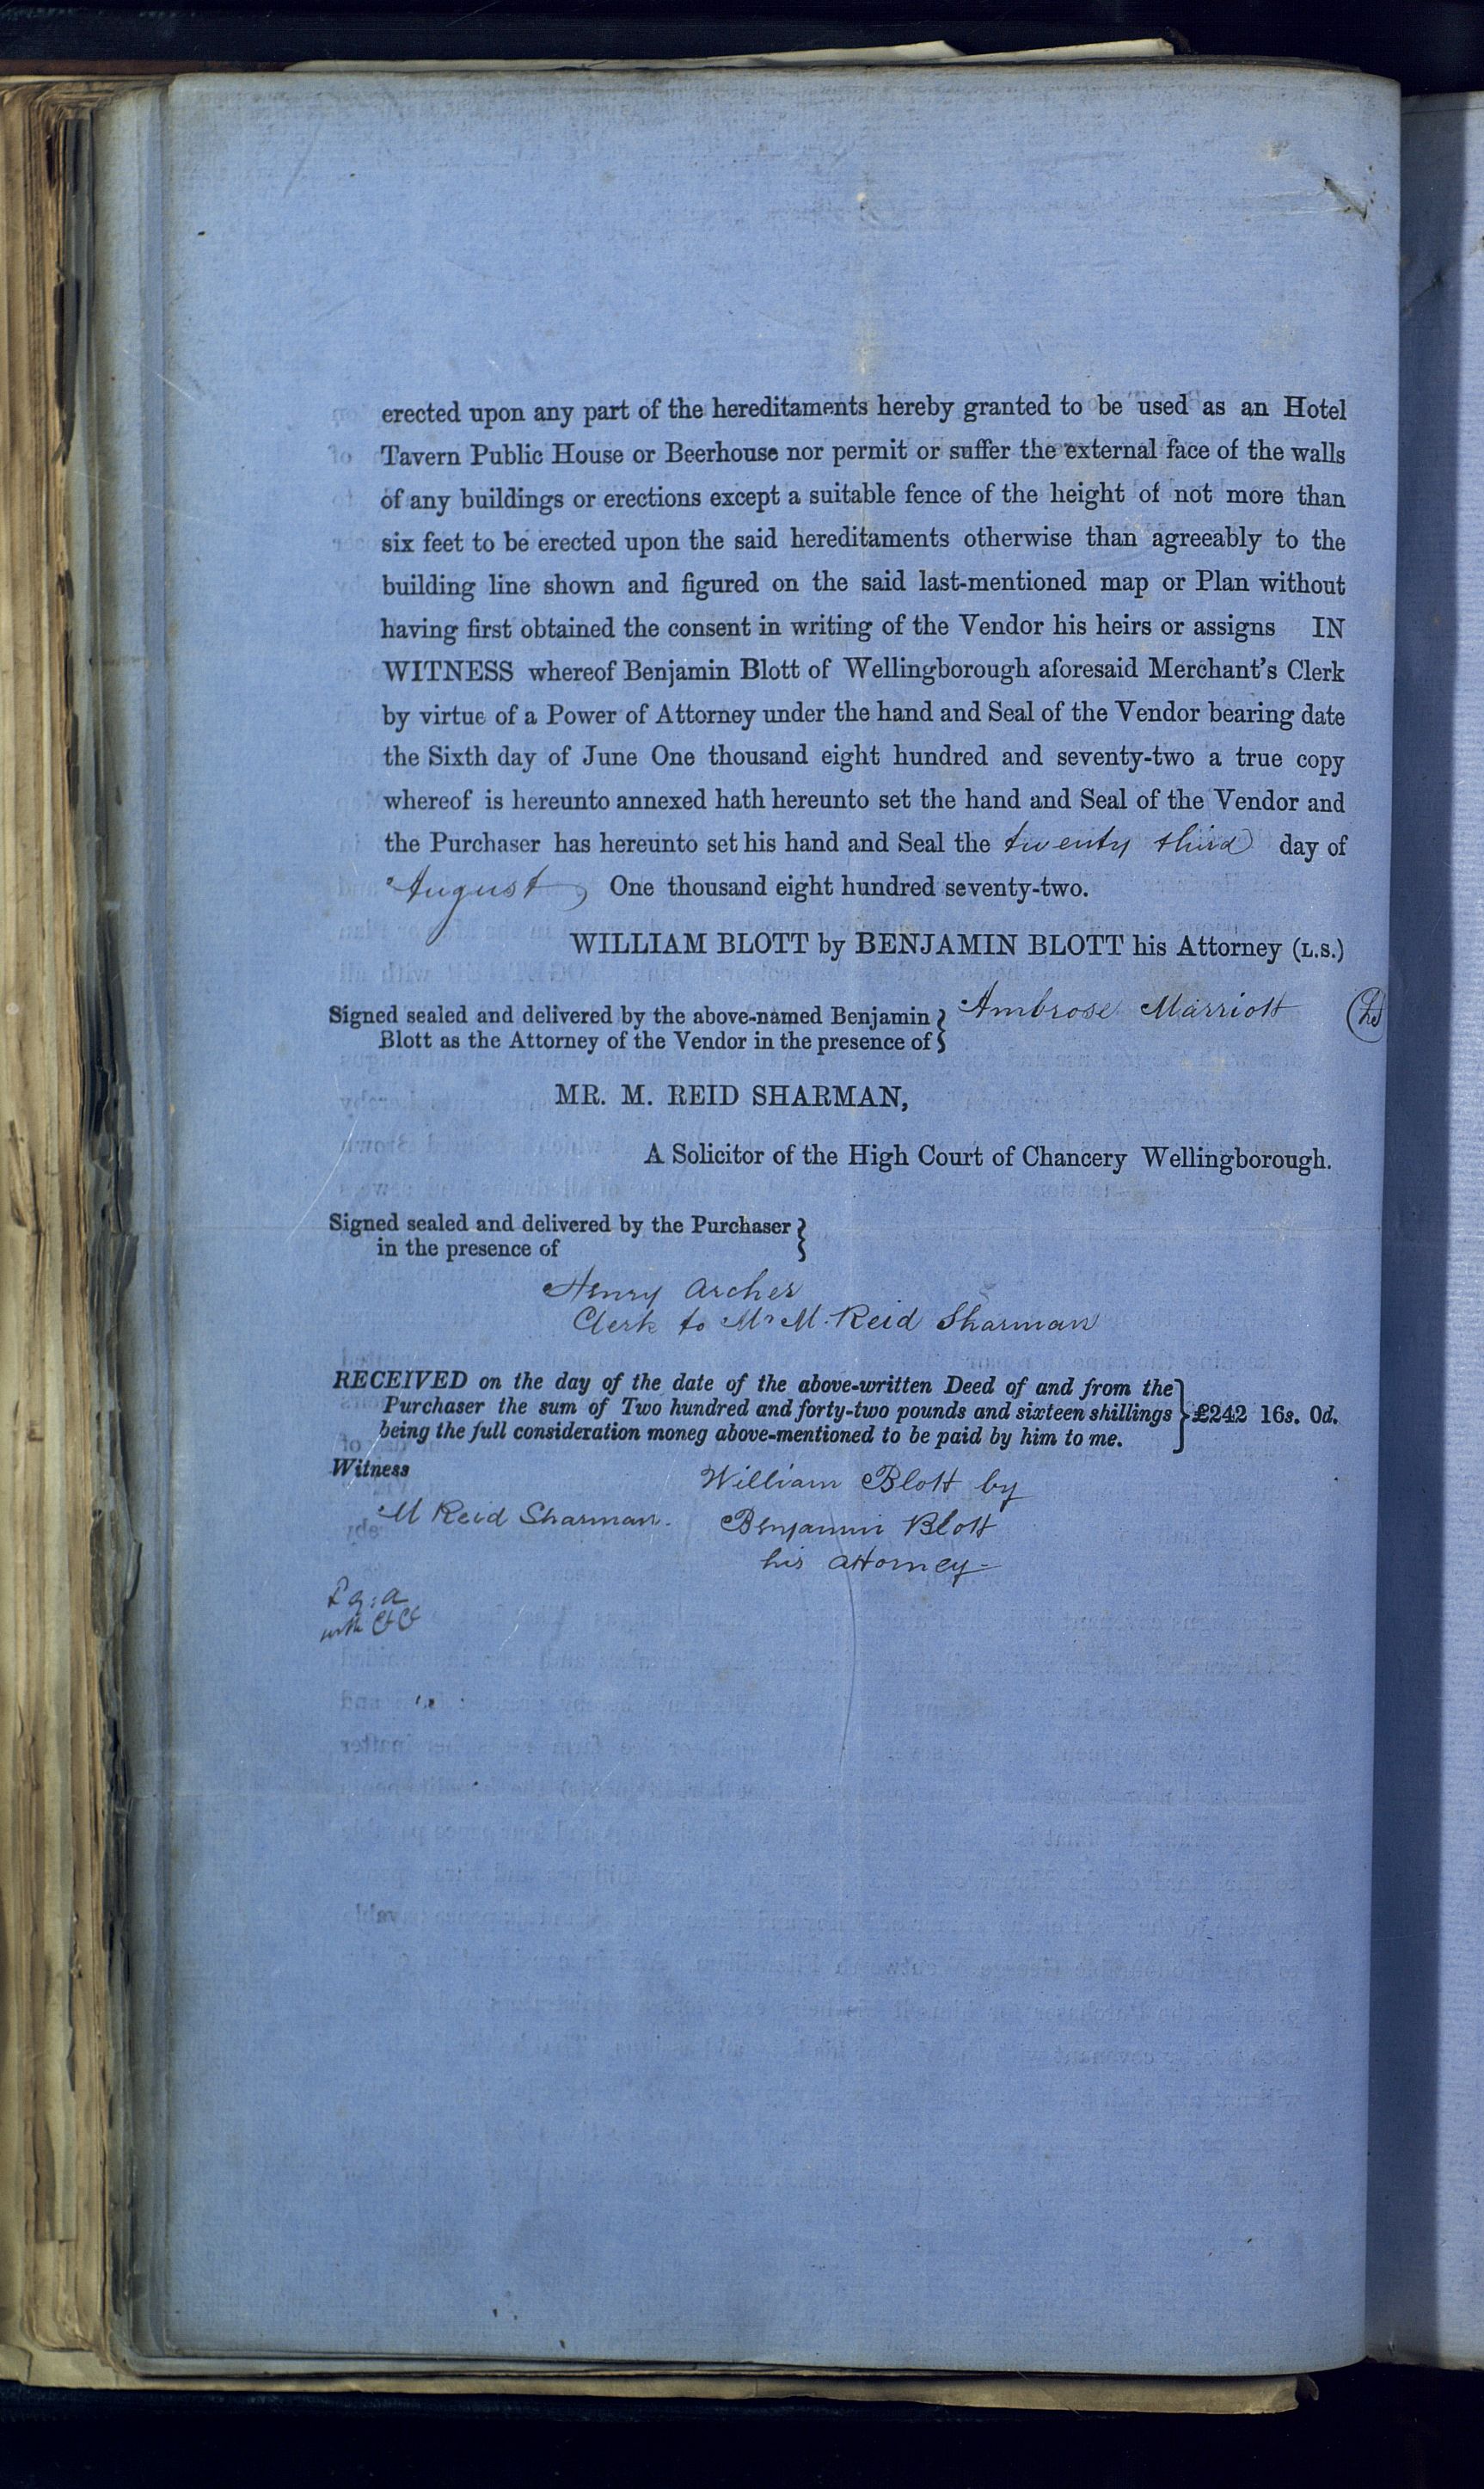 erected upon any part of the hereditaments hereby granted to be used as an Hotel
Tavern Public House or Beerhouse nor permit or suffer the external face of the walls
of any buildings or erections except a suitable fence of the height of not more than
six feet to be erected upon the said hereditaments otherwise than agreeably to the
building line shown and figured on the said last-mentioned map or Plan without
having first obtained the consent in writing of the Vendor his heirs or assigns IN
WITNESS whereof Benjamin Blott of Wellingborough aforesaid Merchant's Clerk
by virtue of a Power of Attorney under the hand and Seal of the Vendor bearing date
the Sixth day of June One thousand eight hundred and seventy-two a true copy
whereof is hereunto annexed hath hereunto set the hand and Seal of the Vendor and
the Purchaser has hereunto set his hand and Seal the twenty third day of
August One thousand eight hundred seventy-two.
WILLIAM BLOTT by BENJAMIN BLOTT his Attorney (L.S.)
Signed sealed and delivered by the above-named Benjamin } Ambrose Marriott
Blott as the Attorney of the Vendor in the presence of
MR. M. REID SHARMAN,
A Solicitor of the High Court of Chancery Wellingborough.
Signed sealed and delivered by the Purchaser }
in the presence of
Henry Archer
Clerk to Mr M. Reid Sharman
RECEIVED on the day of the date of the above-written Deed of and from the
Purchaser the sum of Two hundred and forty-two pounds and sixteen shillings } £242 16s. 0d.
being the full consideration moneg above-mentioned to be paid by him to me.
Witness
William Blott by
M Reid Sharman. Benjamin Blott
his attorney